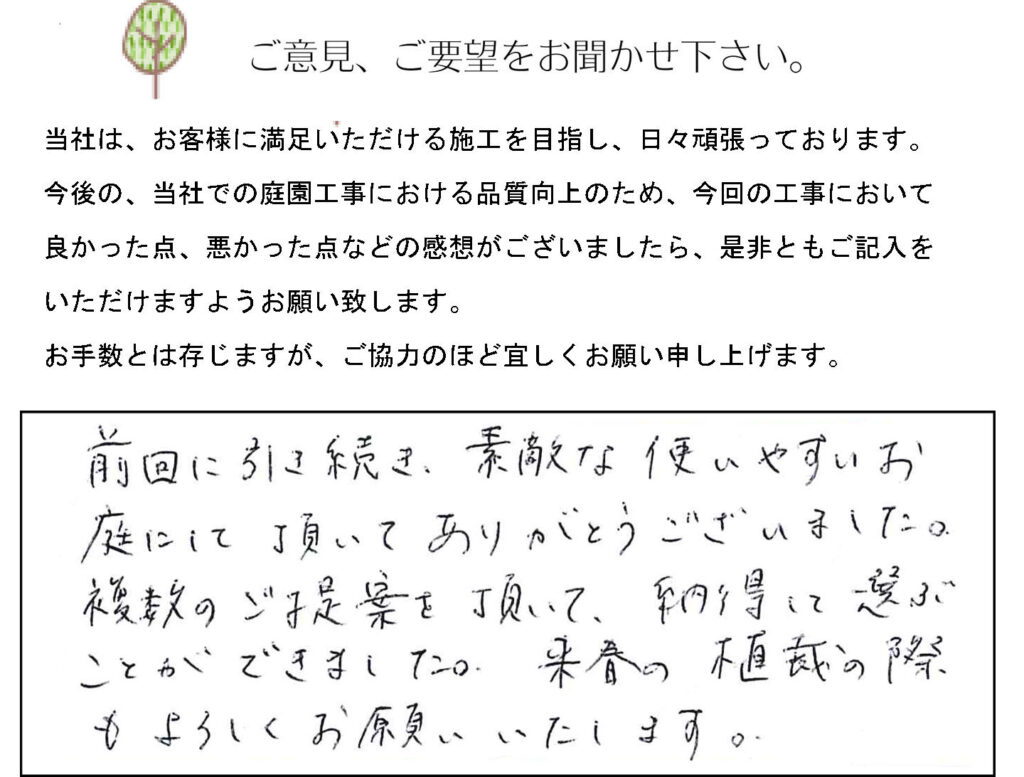 ご意見、ご要望をお聞かせ下さい。
当社は、お客様に満足いただける施工を目指し、日々頑張っております。
今後の、当社での庭園工事における品質向上のため、今回の工事において
良かった点、悪かった点などの感想がございましたら、是非ともご記入を
いただけますようお願い致します。
お手数とは存じますが、ご協力のほど宜しくお願い申し上げます。
前回に引き続き、素敵な使いやすいお
庭にして頂いてありがとうございました。
複数のご提案を頂いて、納得して選ぶ
ことができました。来春の植栽の際
もよろしくお願いいたします。